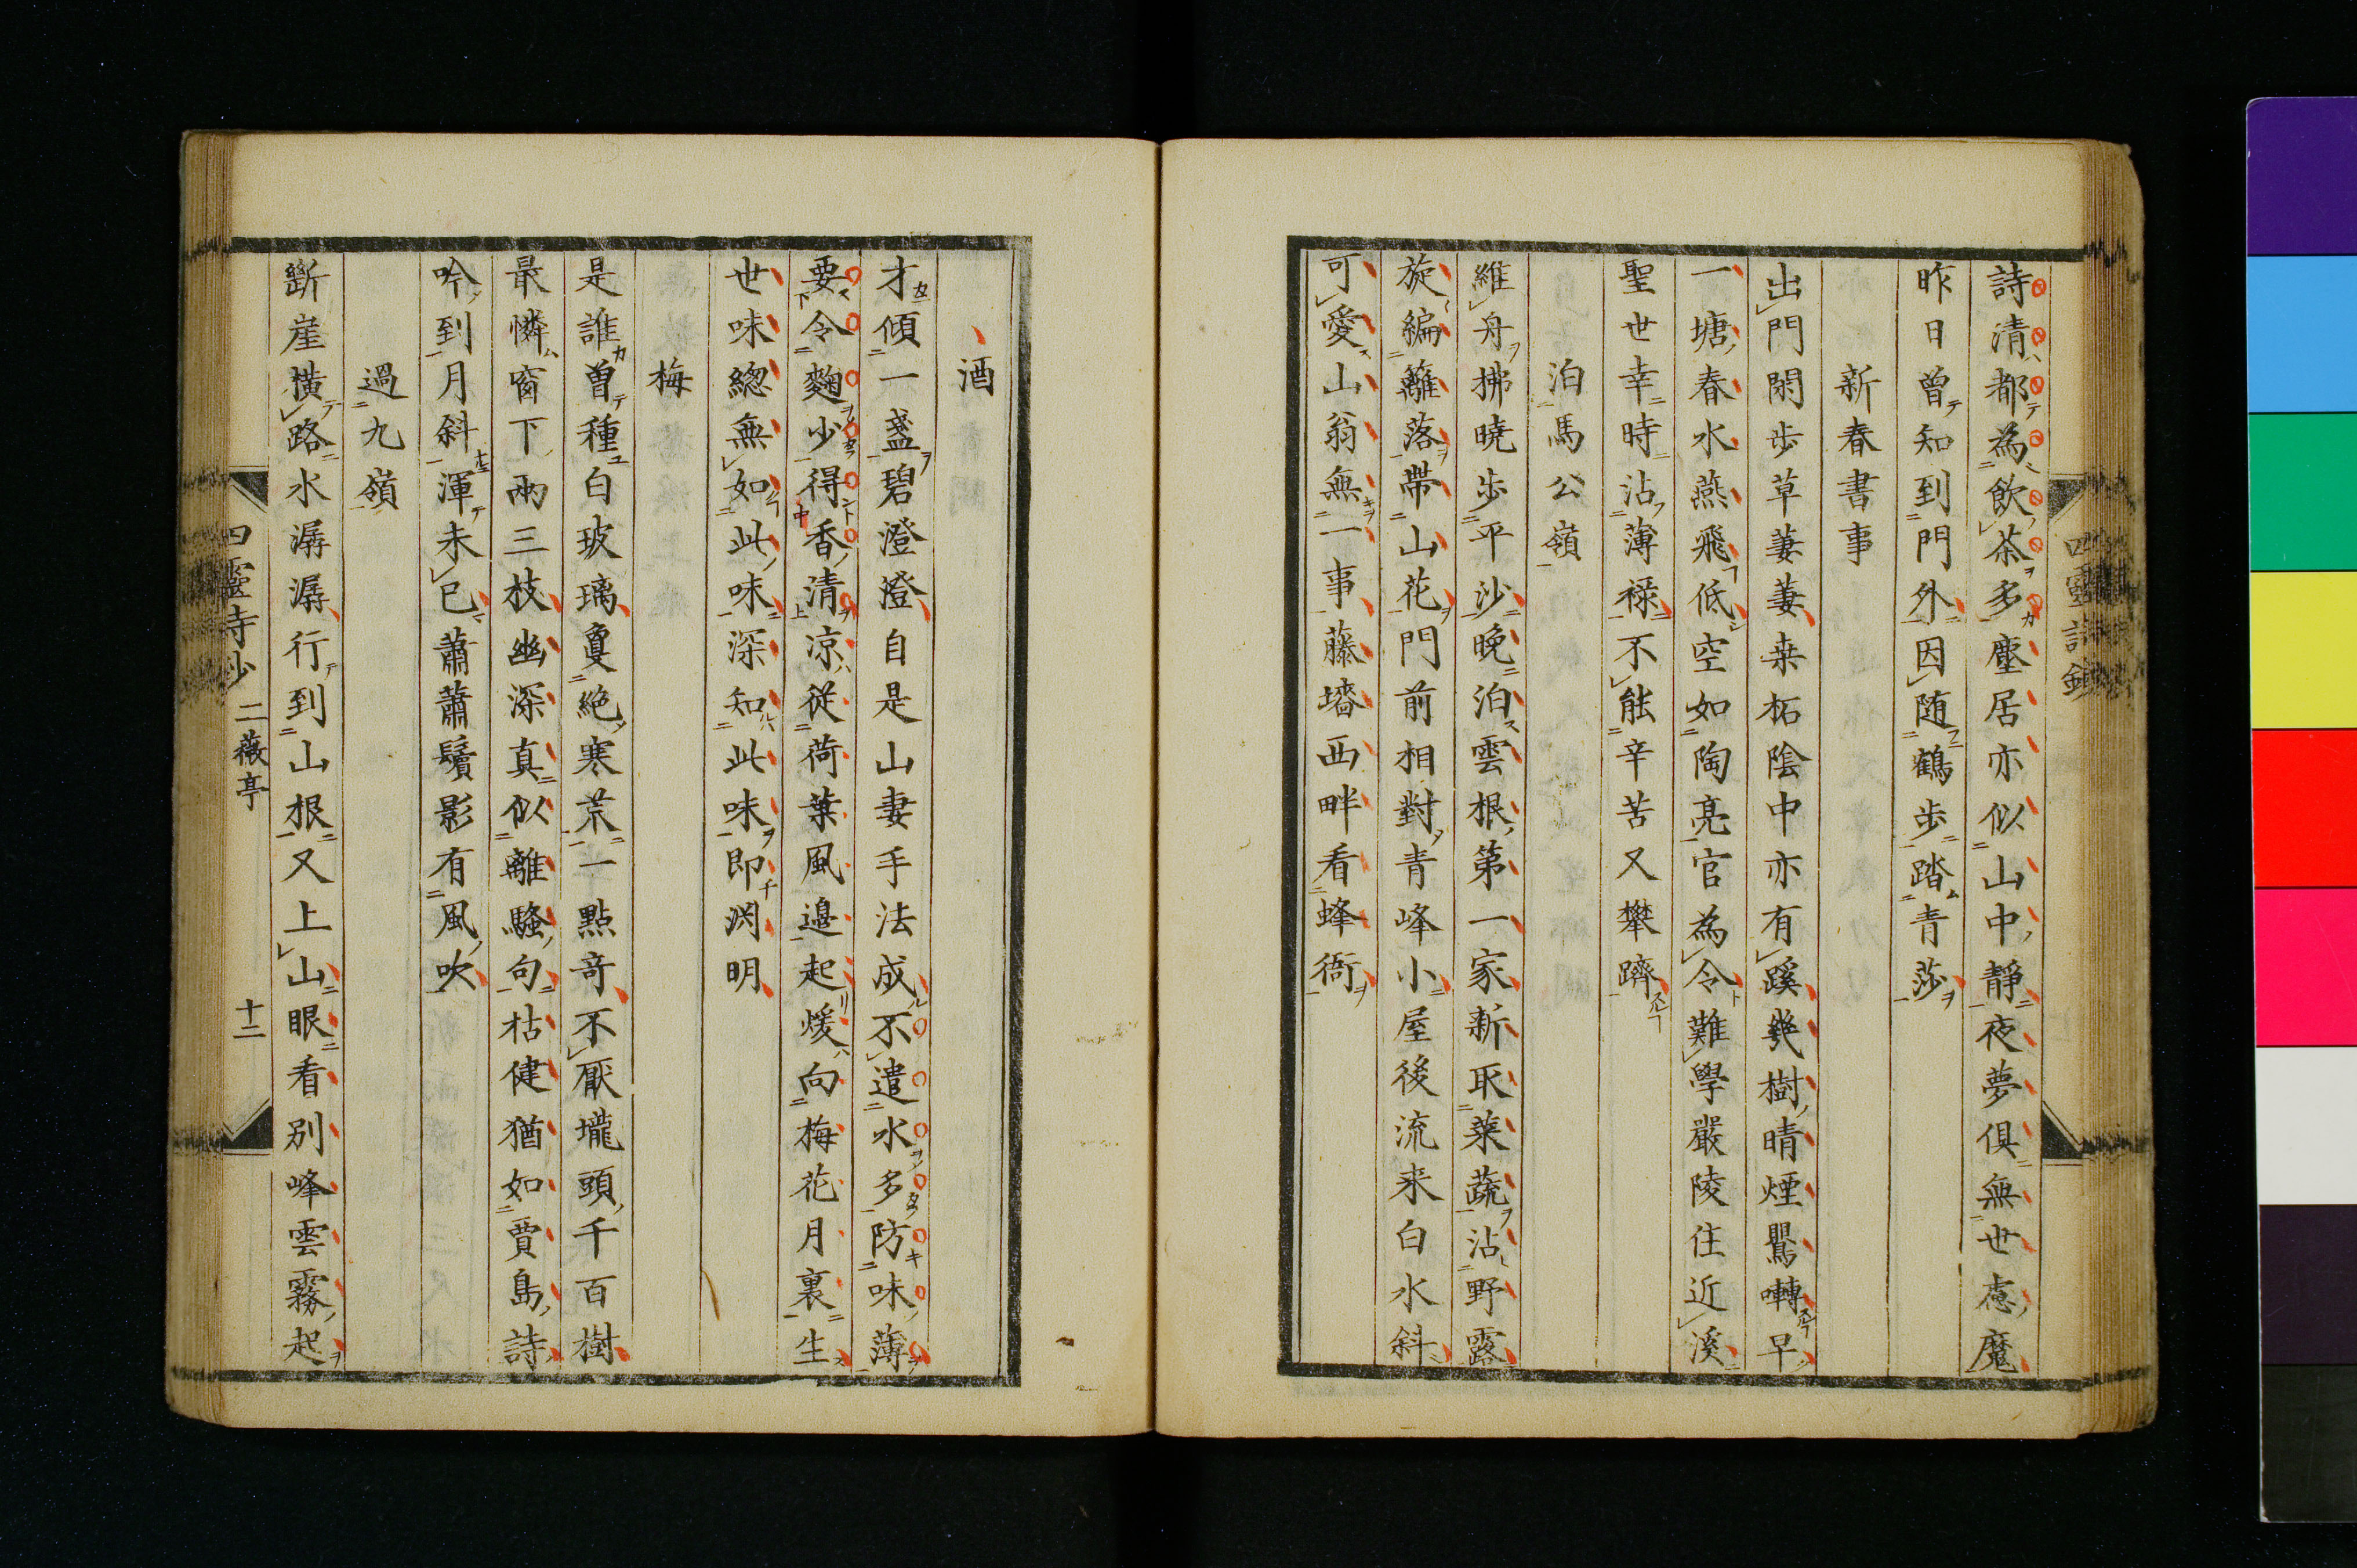 詩清都為飲茶多塵居亦似山中靜夜夢俱無世慮魔
昨日曾知到門外因随鶴步踏青莎
新春書事
出門閑步草萋萋桒柘陰中亦有蹊幾樹晴煙鸎囀早
一塘春水燕飛低空如陶亮官為令難學嚴陵住近溪
聖世幸時沾薄禄不能辛苦又攀躋
泊馬公嶺
維舟拂曉步平沙晩泊雲根第一家新取菜蔬沾野露
旋編籬落帶山花門前相對青峰小屋後流来白水斜
可愛山翁無一事藤墻西畔看蜂衙
酒
才傾一盞碧澄澄自是山妻手法成不遣水多防味薄
要令麴少得香清凉從荷葉風邉起煖向梅花月裏生
世味緫無如此味深知此味即渕明
梅
是誰曾種白玻璃敻絶寒荒一點竒不厭壠頭千百樹
最憐窗下兩三枝幽深真似離騷句枯健猶如賈島詩
吟到月斜渾未已蕭蕭鬢影有風吹
過九嶺
斷崖横路水潺潺行到山根又上山眼看别峰雲霧起
四靈寺少 二薇亭 十二